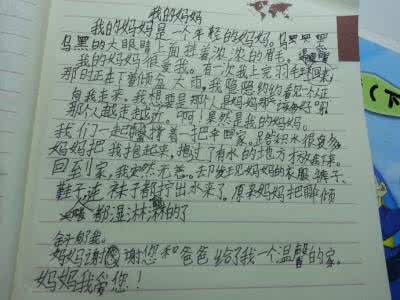 我的妈妈
我的妈妈是一个年轻的妈妈。
乌黑的大眼睛上面挂着浓浓的眉毛。
我的妈妈很爱我。有一次我上完羽毛球课
那时正在下着倾盆大雨。我隐隐约约看见一个人正
向我走来。我想要是那个人是妈妈那该多好
那个人越走越近。啊！果然是我的妈妈。
我们一起撑着一把伞回家。路
妈妈把我抱起来，抱过了有水的地方才放
回到家，我安然无恙。却发现妈妈的衣服裤子、
鞋子连袜子都拧出水来了。原来妈妈把伞倾
都湿淋淋的了
妈妈谢谢您和爸爸给了我一个温馨的家。
妈妈我爱您！
（下